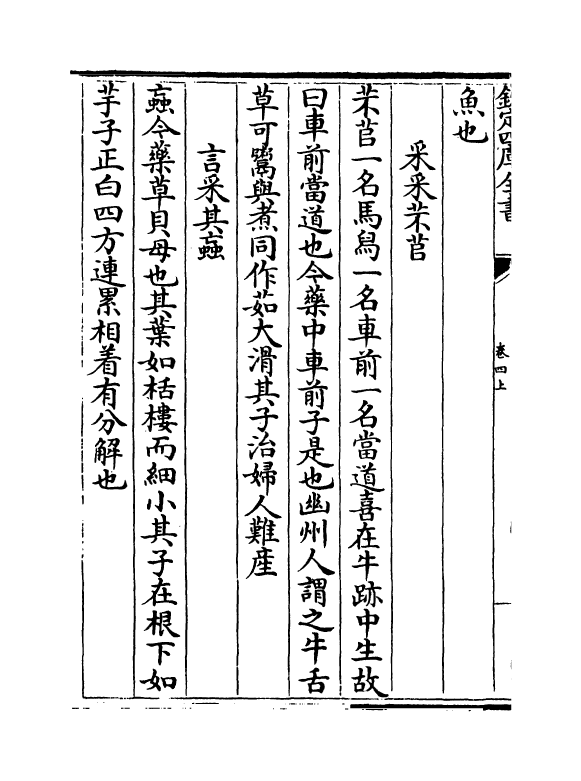 欽定四庫全書
卷四上
魚也
采采芣苢
芣苢一名馬舄一名車前一名當道喜在牛跡中生故
曰車前當道也今藥中車前子是也幽州人謂之牛舌
草可鬻與煮同作茹大滑其子治婦人難産
言采其蝱
蝱今藥草貝母也其葉如栝樓而細小其子在根下如
芋子正白四方連累相着有分解也